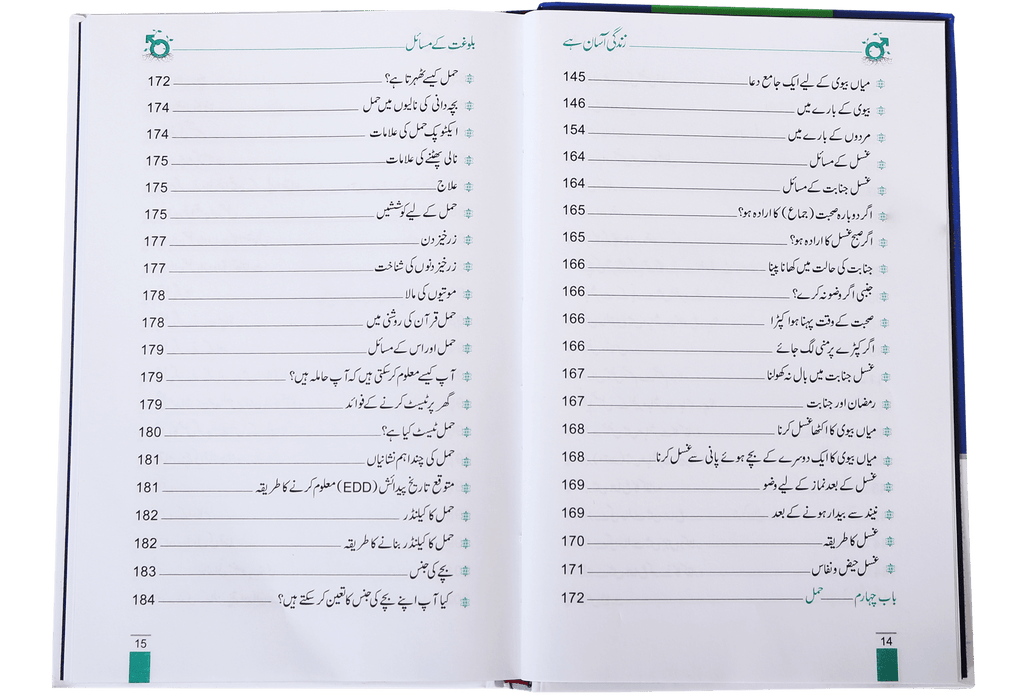 زندگی آسان ہے
میاں بیوی کے لیے ایک جامع دعا 145
بیوی کے بارے میں 146
مردوں کے بارے میں 154
غسل کے مسائل 164
غسل جنابت کے مسائل 164
اگر دوبارہ صحبت (جماع) کا ارادہ ہو؟ 165
اگر صبح غسل کا ارادہ ہو؟ 165
جنابت کی حالت میں کھانا پینا 166
جنبی اگر وضو نہ کرے؟ 166
صحبت کے وقت پہنا ہوا کپڑا 166
اگر کپڑے پر منی لگ جائے 166
غسل جنابت میں بال نہ کھولنا 167
رمضان اور جنابت 167
میاں بیوی کا اکٹھا غسل کرنا 168
میاں بیوی کا ایک دوسرے کے بچے ہوئے پانی سے غسل کرنا 168
غسل کے بعد نماز کے لیے وضو 169
نیند سے بیدار ہونے کے بعد 169
غسل کا طریقہ 170
غسل حیض و نفاس 171
باب چہارم حمل 172
14
بلوغت کے مسائل
حمل کیسے ٹھہرتا ہے؟ 172
بچہ دانی کی نالیوں میں حمل 174
ایکٹوپک حمل کی علامات 174
نالی پھٹنے کی علامات 175
علاج 175
حمل کے لیے کوششیں 175
زرخیز دن 177
زرخیز دنوں کی شناخت 177
موتیوں کی مالا 178
حمل قرآن کی روشنی میں 178
حمل اور اس کے مسائل 179
آپ کیسے معلوم کر سکتی ہیں کہ آپ حاملہ ہیں؟ 179
گھر پر ٹیسٹ کرنے کے فوائد 179
حمل ٹیسٹ کیا ہے؟ 180
حمل کی چند اہم نشانیاں 181
متوقع تاریخ پیدائش (EDD) معلوم کرنے کا طریقہ 181
حمل کا کیلنڈر 182
حمل کا کیلنڈر بنانے کا طریقہ 182
بچے کی جنس 183
کیا آپ اپنے بچے کی جنس کا تعین کر سکتے ہیں؟ 184
15